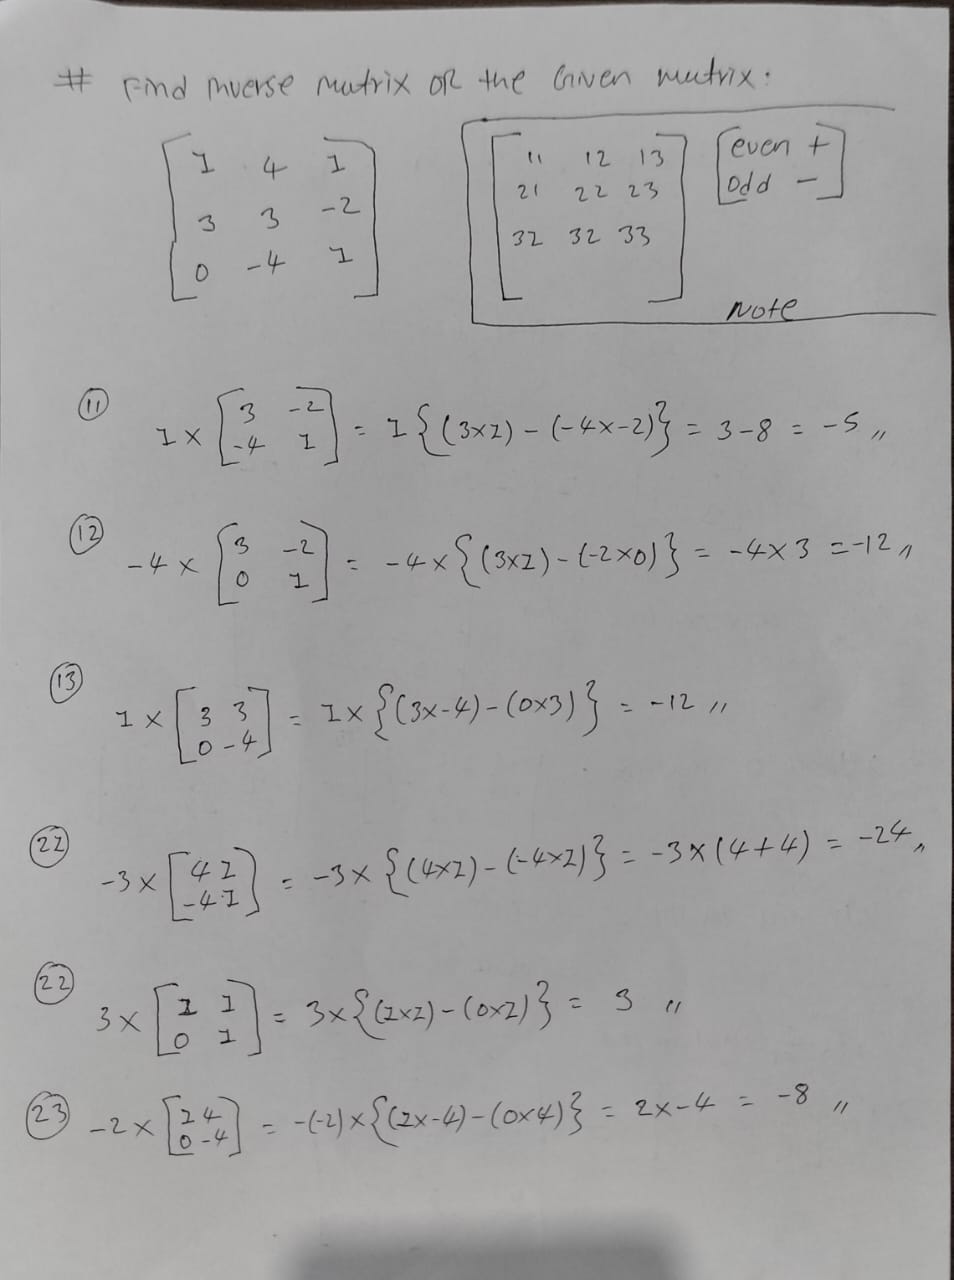 # Find inverse matrix of the Given matrix:
1 4 1
3 3 -2
0 -4 1
11 12 13
21 22 23
32 32 33
even +
odd -
Note
(11) 1 × [3 -2 -4 1] = 1{(3×1) - (-4×-2)} = 3-8 = -5 〃
(12) -4 × [3 -2 0 1] = -4×{(3×1) - (-2×0)} = -4×3 = -12 〃
(13) 1 × [3 3 0 -4] = 1×{(3×-4) - (0×3)} = -12 〃
(21) -3 × [4 1 -4 1] = -3×{(4×1) - (-4×1)} = -3×(4+4) = -24 〃
(22) 3 × [1 1 0 1] = 3×{(1×1) - (0×1)} = 3 〃
(23) -2 × [1 4 0 -4] = -(-2)×{(1×-4) - (0×4)} = 2×-4 = -8 〃